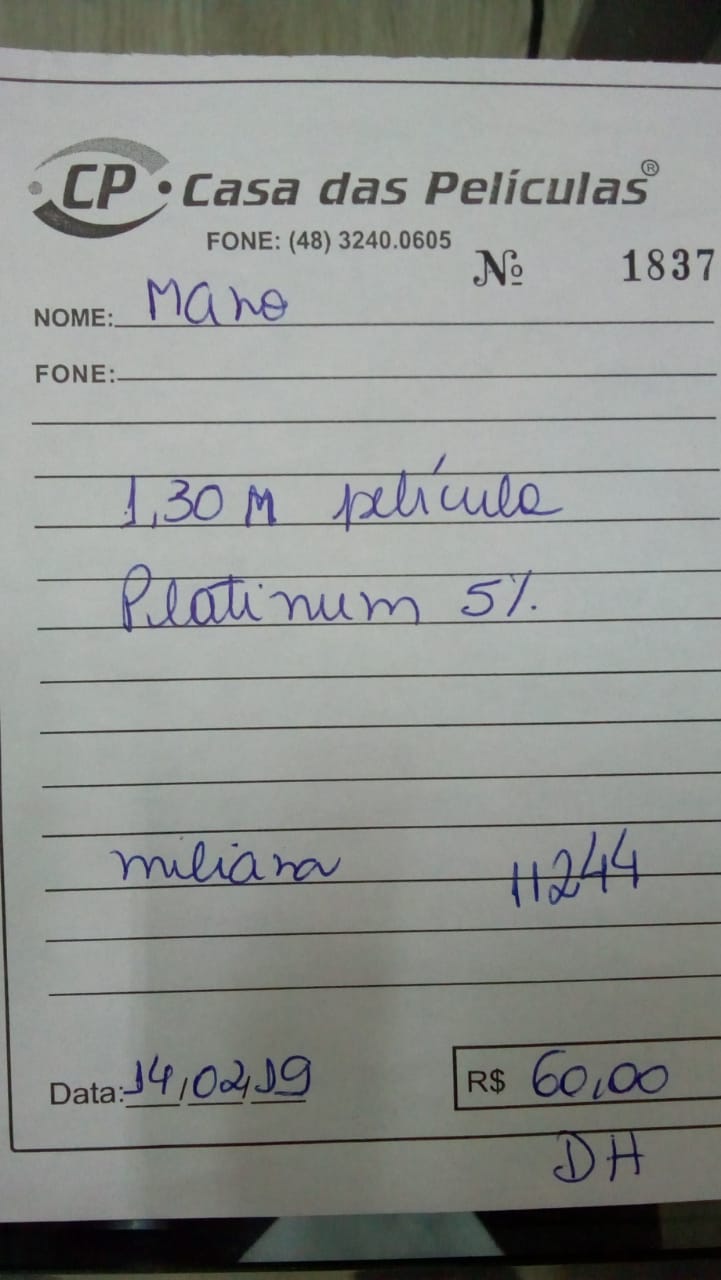 CP • Casa das Películas®
FONE: (48) 3240.0605
Nº 1837
NOME: Mano
FONE:
1,30 M película
Platinum 5%
miliana 11244
Data: 14/02/19 R$ 60,00
DH